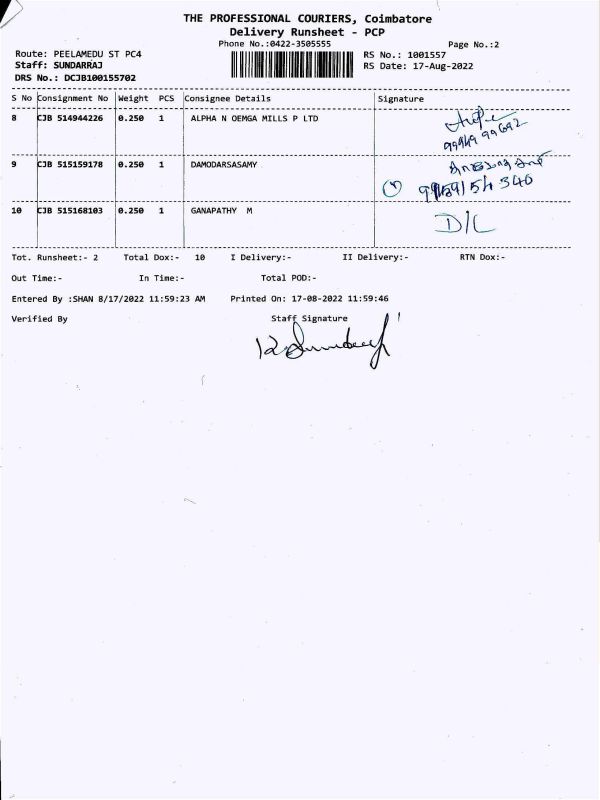 THE PROFESSIONAL COURIERS, Coimbatore
Delivery Runsheet - PCP
Phone No.:0422-3505555
Page No.:2
Route: PEELAMEDU ST PC4
RS No.: 1001557
Staff: SUNDARRAJ
RS Date: 17-Aug-2022
DRS No.: DCJB100155702
S No Consignment No Weight PCS Consignee Details Signature
8 CJB 514944226 0.250 1 ALPHA N OEMGA MILLS P LTD
99949 99692
9 CJB 515159178 0.250 1 DAMODARSASAMY
10 CJB 515168103 0.250 1 GANAPATHY M D/L
Tot. Runsheet:- 2 Total Dox:- 10 I Delivery:- II Delivery:- RTN Dox:-
Out Time:- In Time:- Total POD:-
Entered By :SHAN 8/17/2022 11:59:23 AM Printed On: 17-08-2022 11:59:46
Verified By Staff Signature